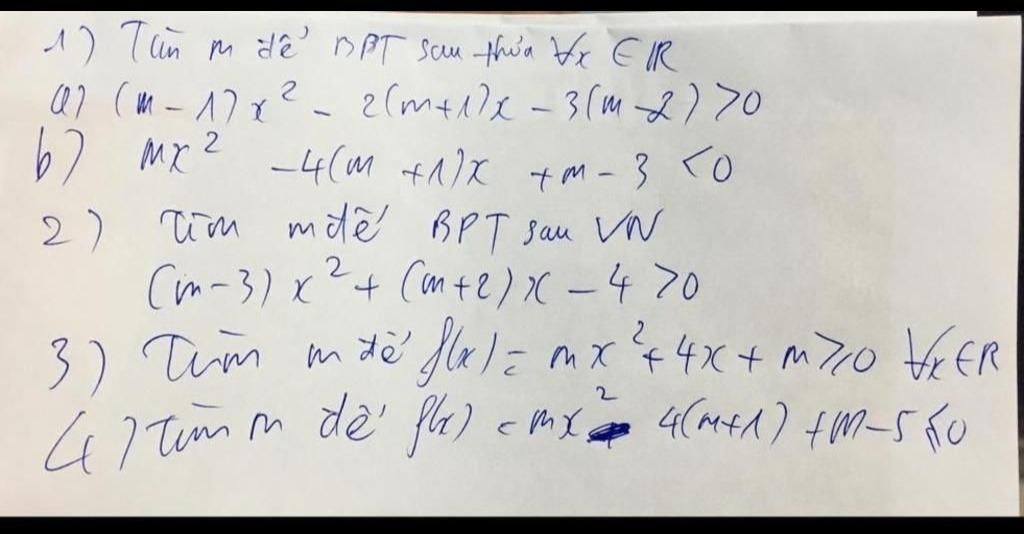 1) Tìm m để BPT sau thỏa ∀x ∈ ℝ
a) (m-1)x² - 2(m+1)x - 3(m-2) > 0
b) mx² - 4(m+1)x + m - 3 < 0
2) Tìm m để BPT sau VN
(m-3)x² + (m+2)x - 4 > 0
3) Tìm m để f(x) = mx² + 4x + m ≥ 0 ∀x ∈ R
4) tìm m để f(x) = mx² - 4(m+1) + m - 5 ≤ 0